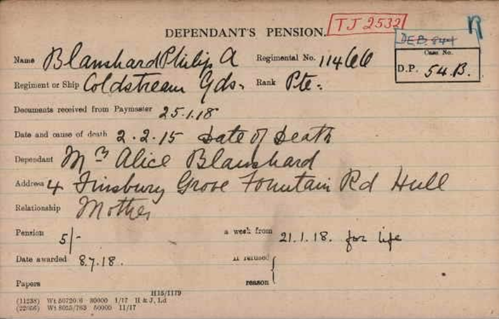 DEPENDANT'S PENSION.
TJ 2532
Name Blanshard Philip A Regimental No. 11466
Case No.
D.P. 54.B.
Regiment or Ship Coldstream Gds. Rank Pte.
Documents received from Paymaster 25.1.18
Date and cause of death 2.2.15 Date of Death
Dependant Mrs Alice Blanshard
Address 4 Finsbury Grove Fountain Rd Hull
Relationship Mother
Pension 5/- a week from 21.1.18. for life
Date awarded 8.7.18. If refused
Papers reason
H15/1179
(11238) Wt 50720/9 80000 1/17 H & J, Ld